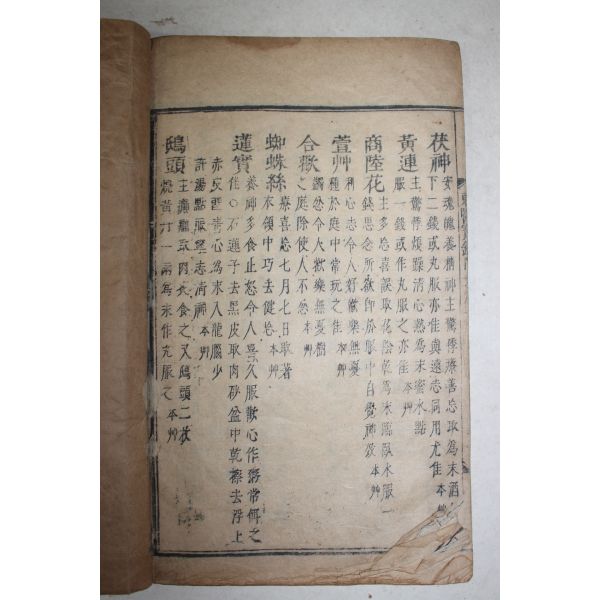 茯神 安魂魄養精神主驚悸療善忘取為末酒
下二錢或丸服亦佳與遠志同用尤佳 本艸
黃連 主驚悸煩躁清心熱為末蜜水點
服一錢或作丸服之亦佳 本艸
商陸花 主多忘喜誤取花陰乾為末臨臥水服一
錢思念所欲卽於眼中自覺神效 本艸
萱艸 利心志令人好歡樂無憂
種於庭中常玩之佳 本艸
合歡 蠲忿令人歡樂無憂樹
之庭除使人不忿 本艸
蜘蛛絲 療喜忘七月七日取著
衣領中巧去健忘 本艸
蓮實 養神多食止怒令人喜久服歡心作粥常餌之
佳○石蓮子去黑皮取肉砂盆中乾擦去浮上
赤皮留青心為末入龍腦少
許湯點服寧志清神 本艸
鴟頭 主癲癎取肉炙食之又鴟頭二枚
燒黃丹一兩為末作丸服之 本艸